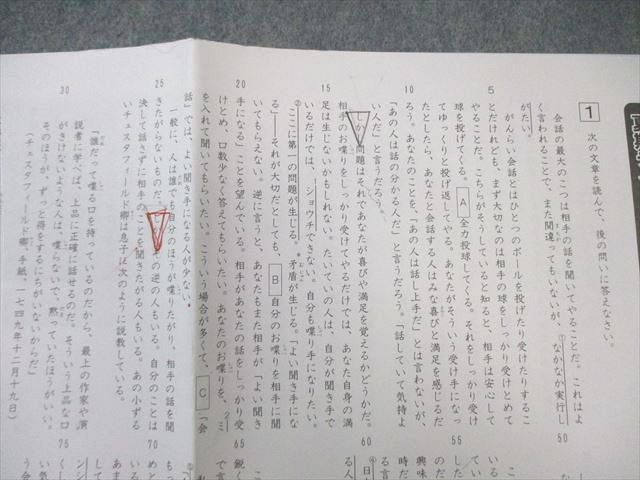 1 次の文章を読んで、後の問いに答えなさい。
会話の最大のこつは相手の話を聞いてやることだ。これはよ
く言われることで、また間違ってもいないが、①なかなか実行し
がたい。
がんらい会話とはひとつのボールを投げたり受けたりするこ
5
とだけれども、まず大切なのは相手の球をしっかり受けとめて
やることだ。こちらがそうしていると知ると、相手は安心して
球を投げてくる。 A 全力投球してくる。それをしっかり受け
てゆっくりと投げ返してやる。あなたがそういう受け手になっ
たとしたら、あなたと会話する人はみな喜びと満足を感じるだ
10
ろう。あなたのことを、「あの人は話し上手だ」とは言わないが、
「あの人は話の分かる人だ」と言うだろう。「話していて気持よ
い人だ」と言うだろう。
しかし問題はそれであなたが喜びや満足を覚えるかどうかだ。
相手のお喋りをしっかり受けてやるだけでは、あなた自身の満
15
足は生じないかもしれない。たいていの人は、自分が聞き手で
いるだけでは、⑴ショウチできない。自分も喋り手になりたい。
②ここに第一の問題が生じる。矛盾が生じる。「よい聞き手にな
る」――それが大切だとしても、 B 自分のお喋りを相手に聞
いてもらえない。逆に言うと、あなたもまた相手が「よい聞き
20
手になる」ことを望んでいる。相手があなたの話をしっかり受
けとめ、口数少なく答えてもらいたい。あなたのお喋りを、⑵ミ
を入れて聞いてもらいたい。こういう場合が多くて、 C 「会
話」では、よい聞き手になる人が少ない。
一般に、人は誰でも自分のほうが喋りたがり、相手の話を聞
25
きたがらないものだ。
の逆の人もいる。自分のことは
決して話さずに相手のことを聞きたがる人もいる。あの小ずる
いチェスタフィールド卿は息子に次のように説教している。
「誰だって喋る口を持っているのだから、最上の作家や演
説者に学べば、上品に正確に話せるのだ。そういう上品な口
30
がきけないような人は、喋らないで、黙っていたほうがいい。
そのほうが、ずっと得をするにちがいないからだ」
（チェスタフィールド卿、手紙、一七四九年十二月十九日）
50
55
60
65
70
75